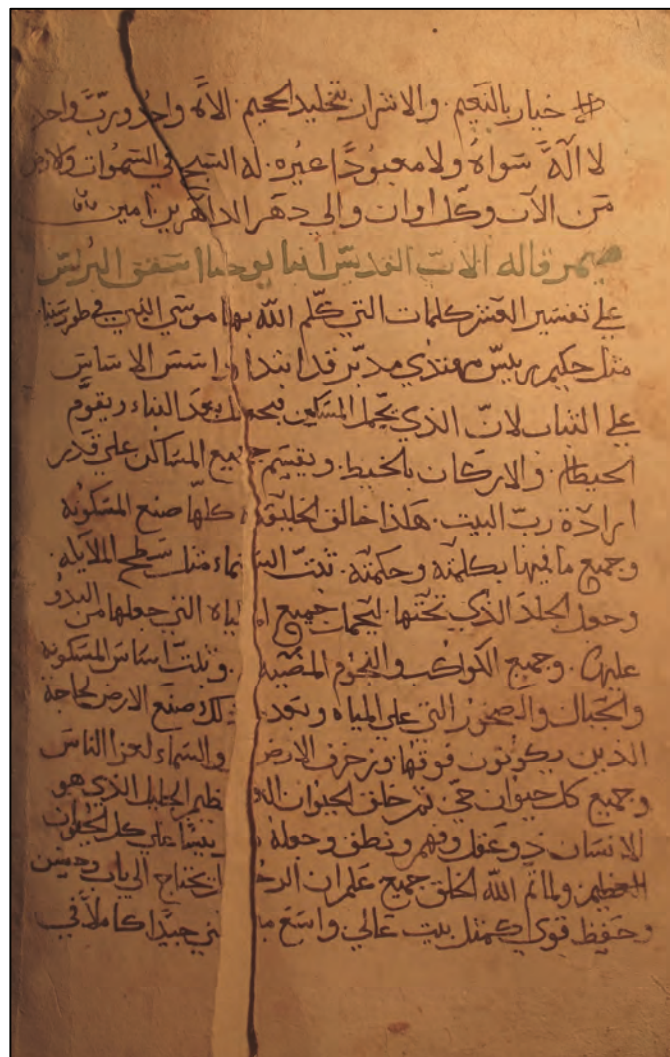 خيار بالنعيم. والاشرار بتخليد الجحيم. الاه واحد وربّ واحد
لا اله سواه ولا معبودًا غيره. له السبح في السموات والارض
من الآن وكل اوان والي دهر الداهرين امين
ميمر قاله الاب القديس انبا يوحنا اسقف البرلس
علي تفسير العشر كلمات التي كلّم الله بها موسي النبي في طور سينا.
مثل حكيم ريس مهندي مدبّر قد ابتدا واسس الاساس
علي الثبات لانّ الذي يحمل المسكن بعد البناء ويقوم
الحيطان. والاركان بالخيط. ويقسم جميع المساكن علي قدر
ارادة ربّ البيت. هكذا خالق الخليقة كلها صنع المسكونة
وجميع ما فيها بكلمته وحكمته. ثبّت السماء مثل سطح
وجعل الجلد الذي تحتها. جميع المياه التي جعلها من البدو
عليها. وجميع الكواكب والنجوم المضيّة. وثبّت اساس المسكونة
والجبال والصخور التي علي المياه وبعد ذلك صنع الارض لحاجة
الذين يكونون فوقها وزخرف الارض والسماء لعزا الناس
وجميع كل حيوان حيّ ثم خلق الحيوان العظيم الجليل الذي هو
الانسان ذو عقل وفهم ونطق وجعله ريسًا علي كل الحيوان
العظيم. ولما تم الله الخلق جميع علم ان يحتاج الي باب وحصن
وحفيظ قوي كمثل بيت عالي واسع مبني جيدًا كاملاً في